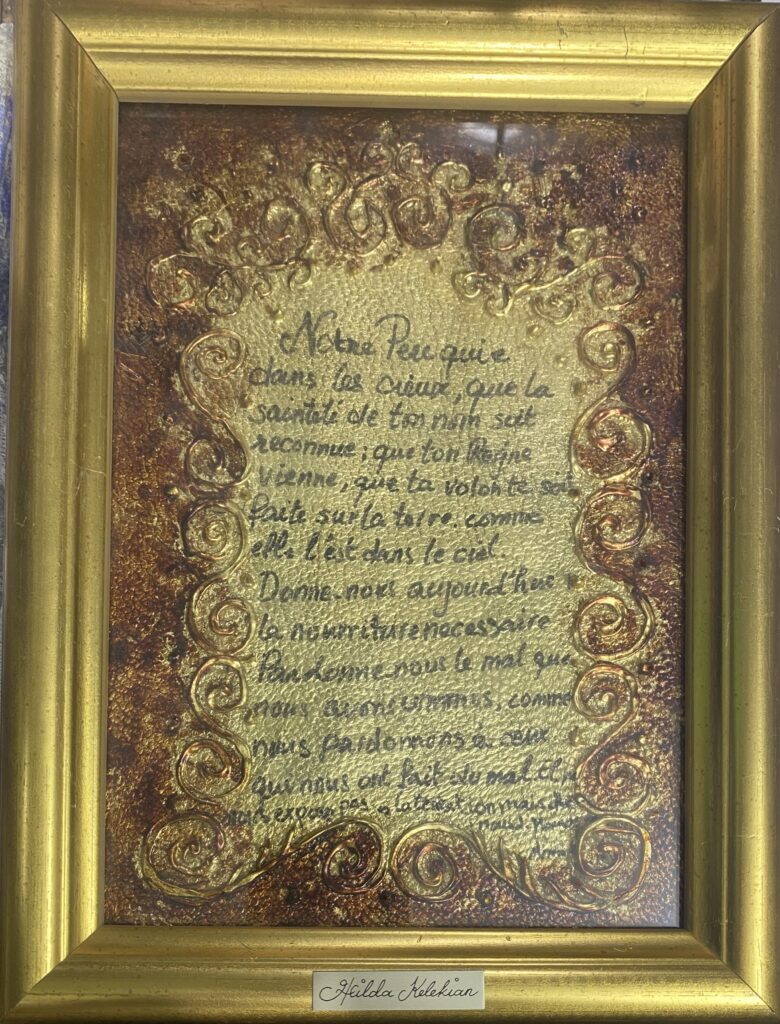 Notre Pere qui e
dans les cieux, que la
sainteté de ton nom soit
reconnue; que ton Regne
vienne, que ta volonté soit
faite sur la terre. comme
elle l'est dans le ciel.
Donne-nous aujourd'hui
la nourriture necessaire
Pardonne-nous le mal que
nous avons commis, comme
nous pardonnons à ceux
qui nous ont fait du mal Et n
nous expose pas a la tentation mais
Hilda Kelekian